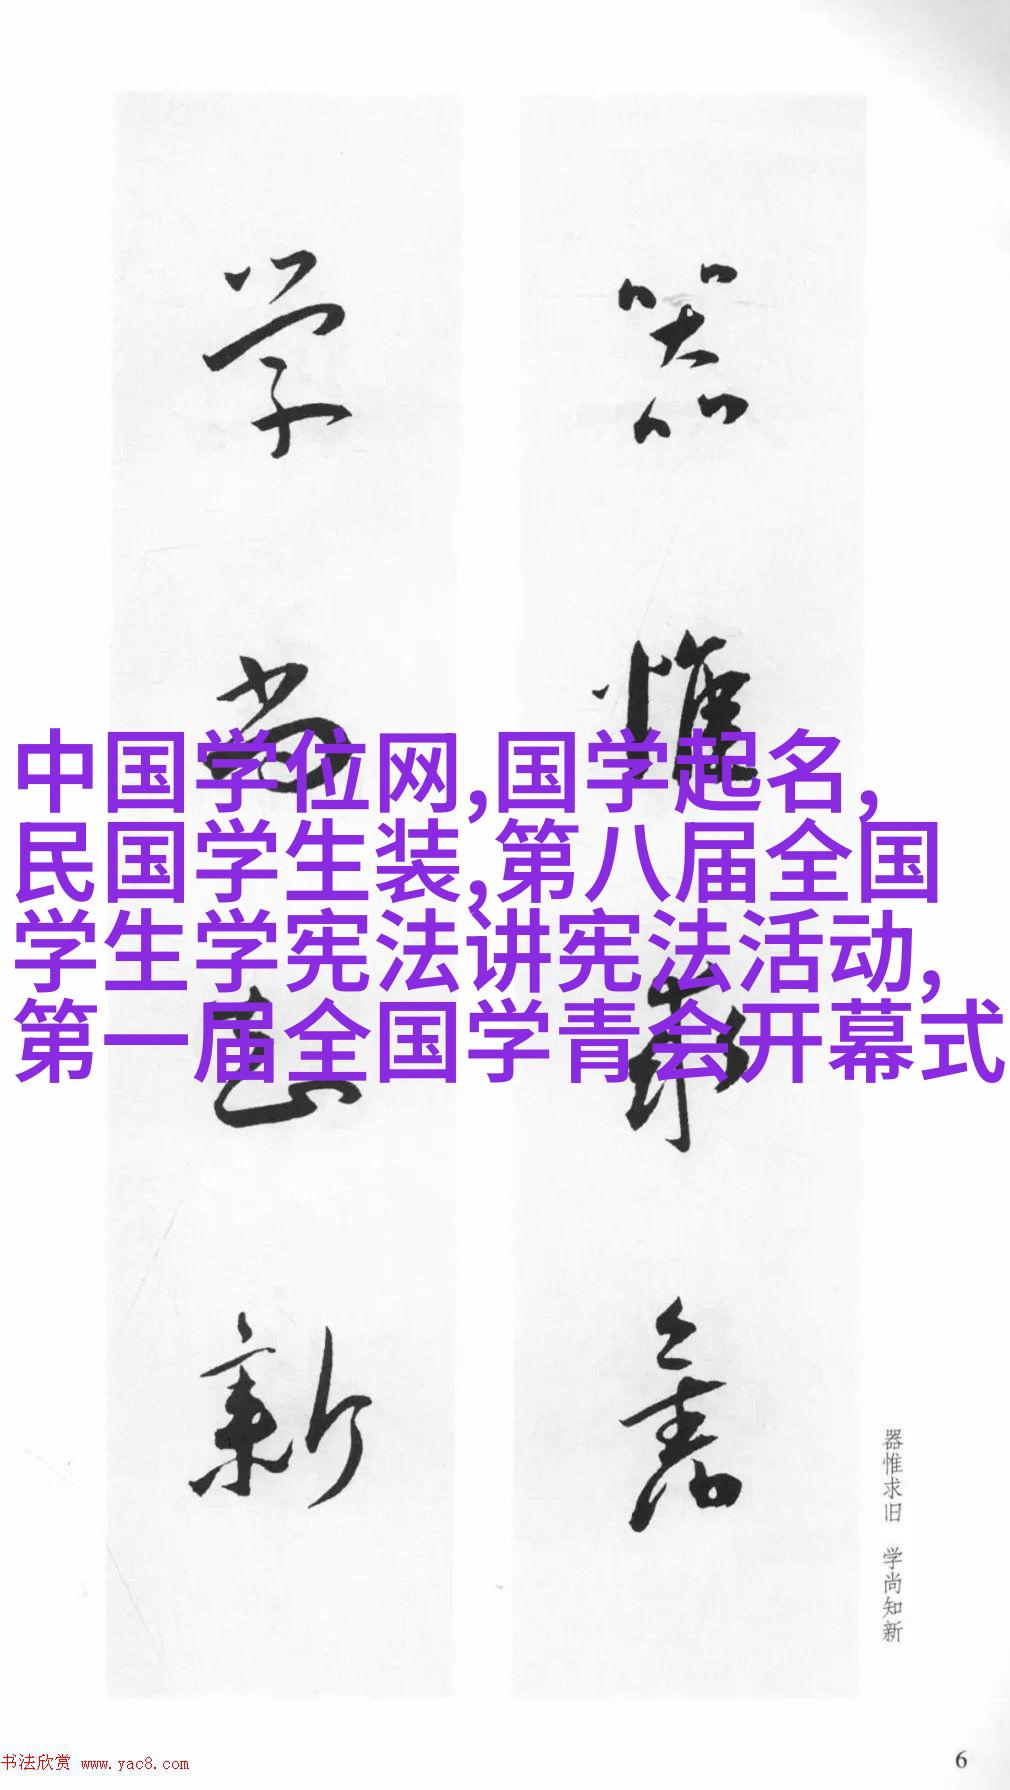 器惟求舊
学尚知新
中国学位网,国学起名,
民国学生装,第八届全国
学生学宪法讲宪法活动,
第一届全国学青会开幕式
器惟求旧 学尚知新
书法欣赏 www.yac8.com
6